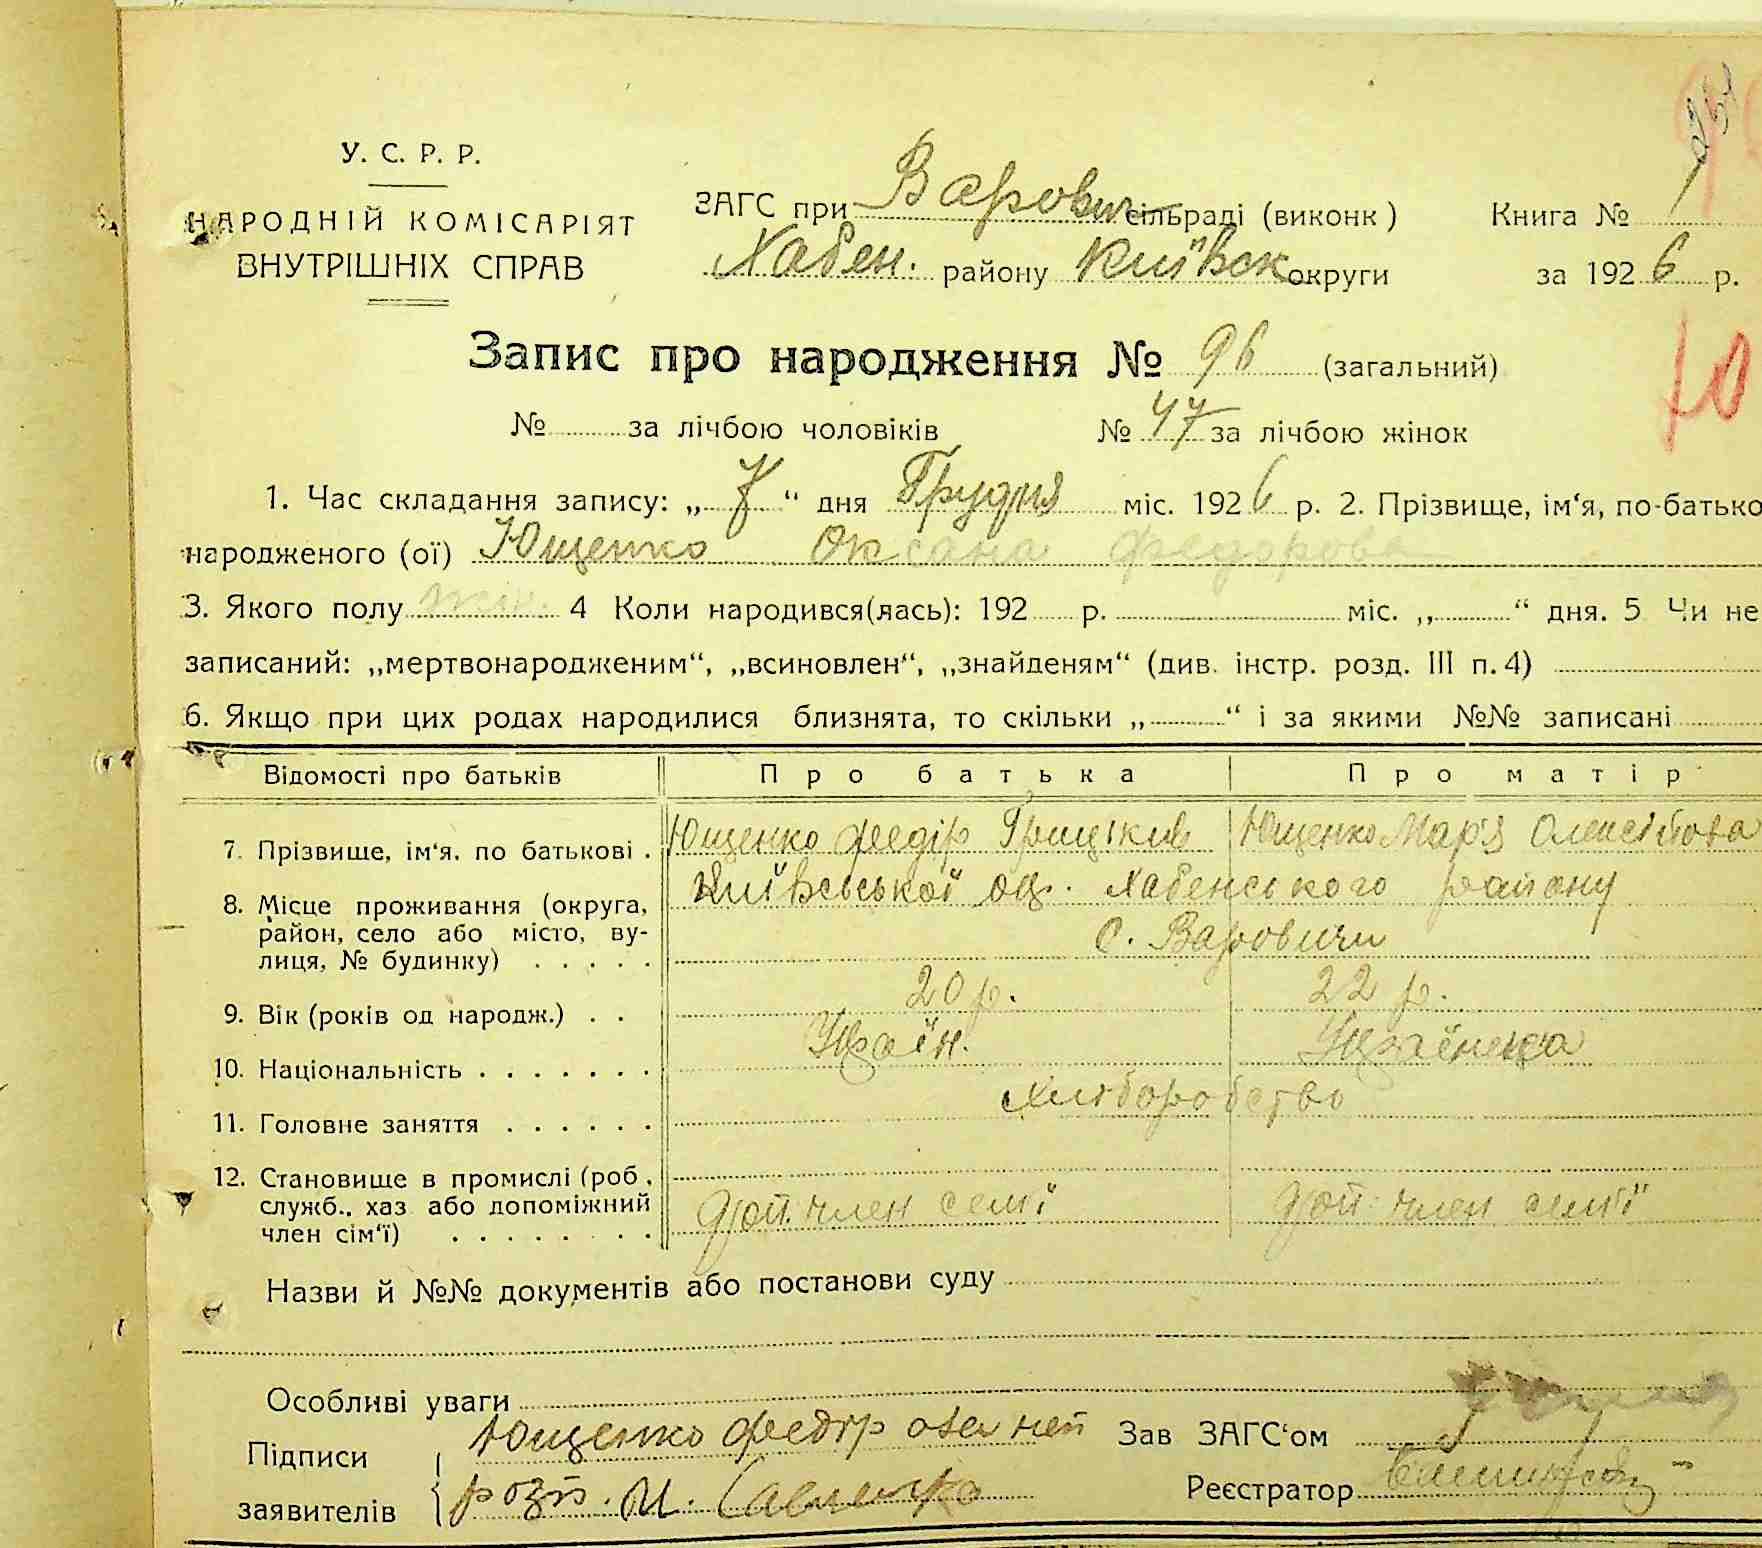 У. С. Р. Р.
НАРОДНІЙ КОМІСАРІЯТ
ВНУТРІШНІХ СПРАВ
ЗАГС при Варович сільраді (виконк) Книга №
Хабен. району Київськ округи за 1926 р.
Запис про народження № 96 (загальний)
10
№ за лічбою чоловіків № 47 за лічбою жінок
1. Час складання запису: „ “ дня Грудня міс. 1926 р. 2. Прізвище, ім‘я, по-батько
народженого (ої) Ющенко Оксана Федорова
3. Якого полу жін. 4 Коли народився(лась): 192 р. міс. „ “ дня. 5 Чи не
записаний: „мертвонародженим“, „всиновлен“, „знайденям“ (див. інстр. розд. III п. 4)
6. Якщо при цих родах народилися близнята, то скільки „ “ і за якими №№ записані
Відомості про батьків Про батька Про матір
7. Прізвище, ім‘я. по батькові . Ющенко Федір Грицьків Ющенко Мар'я
8. Місце проживання (округа, район, село або місто, ву-лиця, № будинку) . . . . . Київської ок. Хабенського району
с. Варовичи
9. Вік (років од народж.) . . 20 р. 22 р.
10. Національність . . . . . . . Україн. Українка
11. Головне заняття . . . . . . Хліборобство
12. Становище в промислі (роб., служб., хаз або допоміжний член сім‘ї) . . . . . . . . доп. член семї доп. член семї
Назви й №№ документів або постанови суду
Особливі уваги
Підписи Ющенко Федір Зав ЗАГС‘ом
заявителів розп. И. Реєстратор